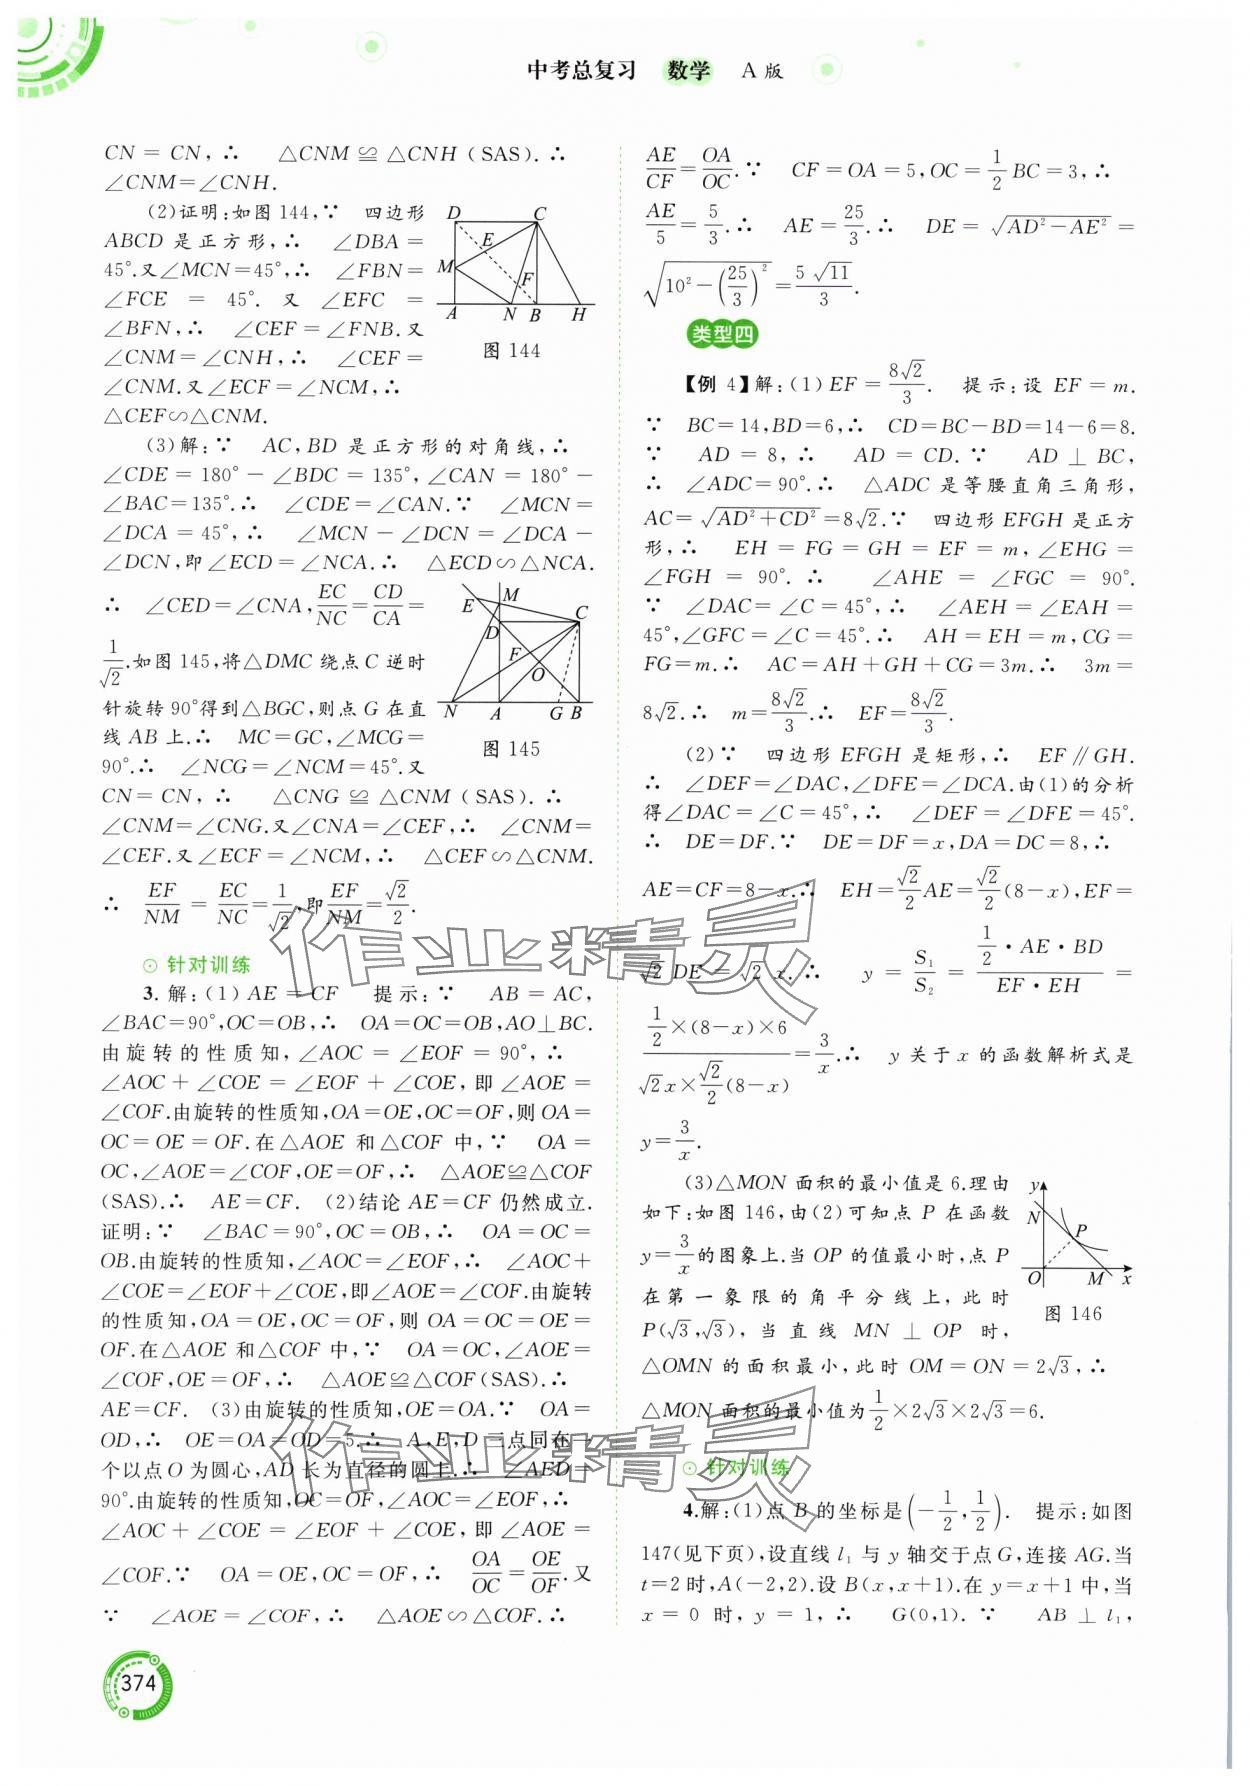 中考总复习 数学 A版
CN = CN, ∴ △CNM ≌ △CNH (SAS). ∴
∠CNM=∠CNH.
(2)证明:如图144,∵ 四边形
ABCD是正方形,∴ ∠DBA =
45°.又∠MCN=45°,∴ ∠FBN =
∠FCE = 45°. 又 ∠EFC =
∠BFN,∴ ∠CEF=∠FNB.又
∠CNM=∠CNH,∴ ∠CEF=
∠CNM.又∠ECF=∠NCM,∴
△CEF∽△CNM.
D C E M F A N B H
图 144
(3)解:∵ AC,BD是正方形的对角线,∴
∠CDE = 180° − ∠BDC = 135°,∠CAN = 180° −
∠BAC=135°.∴ ∠CDE=∠CAN.∵ ∠MCN =
∠DCA = 45°,∴ ∠MCN − ∠DCN = ∠DCA −
∠DCN,即∠ECD=∠NCA.∴ △ECD∽△NCA.
∴ ∠CED=∠CNA,EC/NC=CD/CA=
1/√2.如图145,将△DMC绕点C逆时
针旋转90°得到△BGC,则点G在直
线AB上.∴ MC=GC,∠MCG=
90°.∴ ∠NCG=∠NCM=45°.又
E M C D F O N A G B
图 145
CN = CN, ∴ △CNG ≌ △CNM (SAS). ∴
∠CNM=∠CNG.又∠CNA=∠CEF,∴ ∠CNM=
∠CEF.又∠ECF=∠NCM,∴ △CEF∽△CNM.
∴ EF/NM = EC/NC = 1/√2,即EF/NM=√2/2.
针对训练
3. 解:(1) AE = CF 提示:∵ AB = AC,
∠BAC=90°,OC=OB,∴ OA=OC=OB,AO⊥BC.
由旋转的性质知,∠AOC = ∠EOF = 90°,∴
∠AOC+∠COE=∠EOF+∠COE,即∠AOE=
∠COF.由旋转的性质知,OA=OE,OC=OF,则OA=
OC=OE=OF.在△AOE和△COF中,∵ OA=
OC,∠AOE=∠COF,OE=OF,∴ △AOE≌△COF
(SAS).∴ AE=CF. (2)结论AE=CF仍然成立.
证明:∵ ∠BAC=90°,OC=OB,∴ OA=OC=
OB.由旋转的性质知,∠AOC=∠EOF,∴ ∠AOC+
∠COE=∠EOF+∠COE,即∠AOE=∠COF.由旋转
的性质知,OA=OE,OC=OF,则 OA=OC=OE=
OF.在△AOE和△COF中,∵ OA=OC,∠AOE=
∠COF,OE=OF,∴ △AOE≌△COF(SAS).∴
AE=CF. (3)由旋转的性质知,OE=OA.∵ OA=
OD,∴ OE=OA=OD=5.∴ A,E,D三点同在一
个以点O为圆心,AD长为直径的圆上.∴ ∠AED=
90°.由旋转的性质知,OC=OF,∠AOC=∠EOF,∴
∠AOC + ∠COE = ∠EOF + ∠COE, 即 ∠AOE =
∠COF.∵ OA=OE,OC=OF,∴ OA/OC=OE/OF.又
∵ ∠AOE = ∠COF,∴ △AOE∽△COF.∴
AE/CF=OA/OC.∵ CF=OA=5,OC=1/2BC=3,∴
AE/5=5/3.∴ AE=25/3.∴ DE=√(AD²−AE²)=
√(10²−(25/3)²)=5√11/3.
类型四
【例 4】解:(1)EF=8√2/3. 提示:设 EF=m.
∵ BC=14,BD=6,∴ CD=BC−BD=14−6=8.
∵ AD = 8,∴ AD = CD.∵ AD ⊥ BC,
∴ ∠ADC=90°.∴ △ADC是等腰直角三角形,
AC=√(AD²+CD²)=8√2.∵ 四边形EFGH是正方
形,∴ EH = FG = GH = EF = m,∠EHG =
∠FGH = 90°. ∴ ∠AHE = ∠FGC = 90°.
∵ ∠DAC=∠C=45°,∴ ∠AEH=∠EAH=
45°,∠GFC=∠C=45°.∴ AH=EH=m,CG=
FG=m.∴ AC=AH+GH+CG=3m.∴ 3m=
8√2.∴ m=8√2/3.∴ EF=8√2/3.
(2)∵ 四边形EFGH是矩形,∴ EF∥GH.
∴ ∠DEF=∠DAC,∠DFE=∠DCA.由(1)的分析
得∠DAC=∠C=45°,∴ ∠DEF=∠DFE=45°.
∴ DE=DF.∵ DE=DF=x,DA=DC=8,∴
AE=CF=8−x.∴ EH=√2/2AE=√2/2(8−x),EF=
√2 DE = √2 x.∴ y = S₁/S₂ = (1/2·AE·BD)/(EF·EH) =
(1/2×(8−x)×6)/(√2x×√2/2(8−x))=3/x.∴ y关于x的函数解析式是
y=3/x.
(3)△MON面积的最小值是6.理由
如下:如图146,由(2)可知点P在函数
y=3/x的图象上.当OP的值最小时,点P
在第一象限的角平分线上,此时
P(√3,√3),当直线 MN ⊥ OP 时,
△OMN的面积最小,此时OM=ON=2√3,∴
△MON面积的最小值为1/2×2√3×2√3=6.
y N P O M x
图 146
针对训练
4.解:(1)点B的坐标是(−1/2,1/2). 提示:如图
147(见下页),设直线l₁与y轴交于点G,连接AG.当
t=2时,A(−2,2).设B(x,x+1).在y=x+1中,当
x = 0 时, y = 1,∴ G(0,1).∵ AB ⊥ l₁,
374
作业精灵
作业精灵